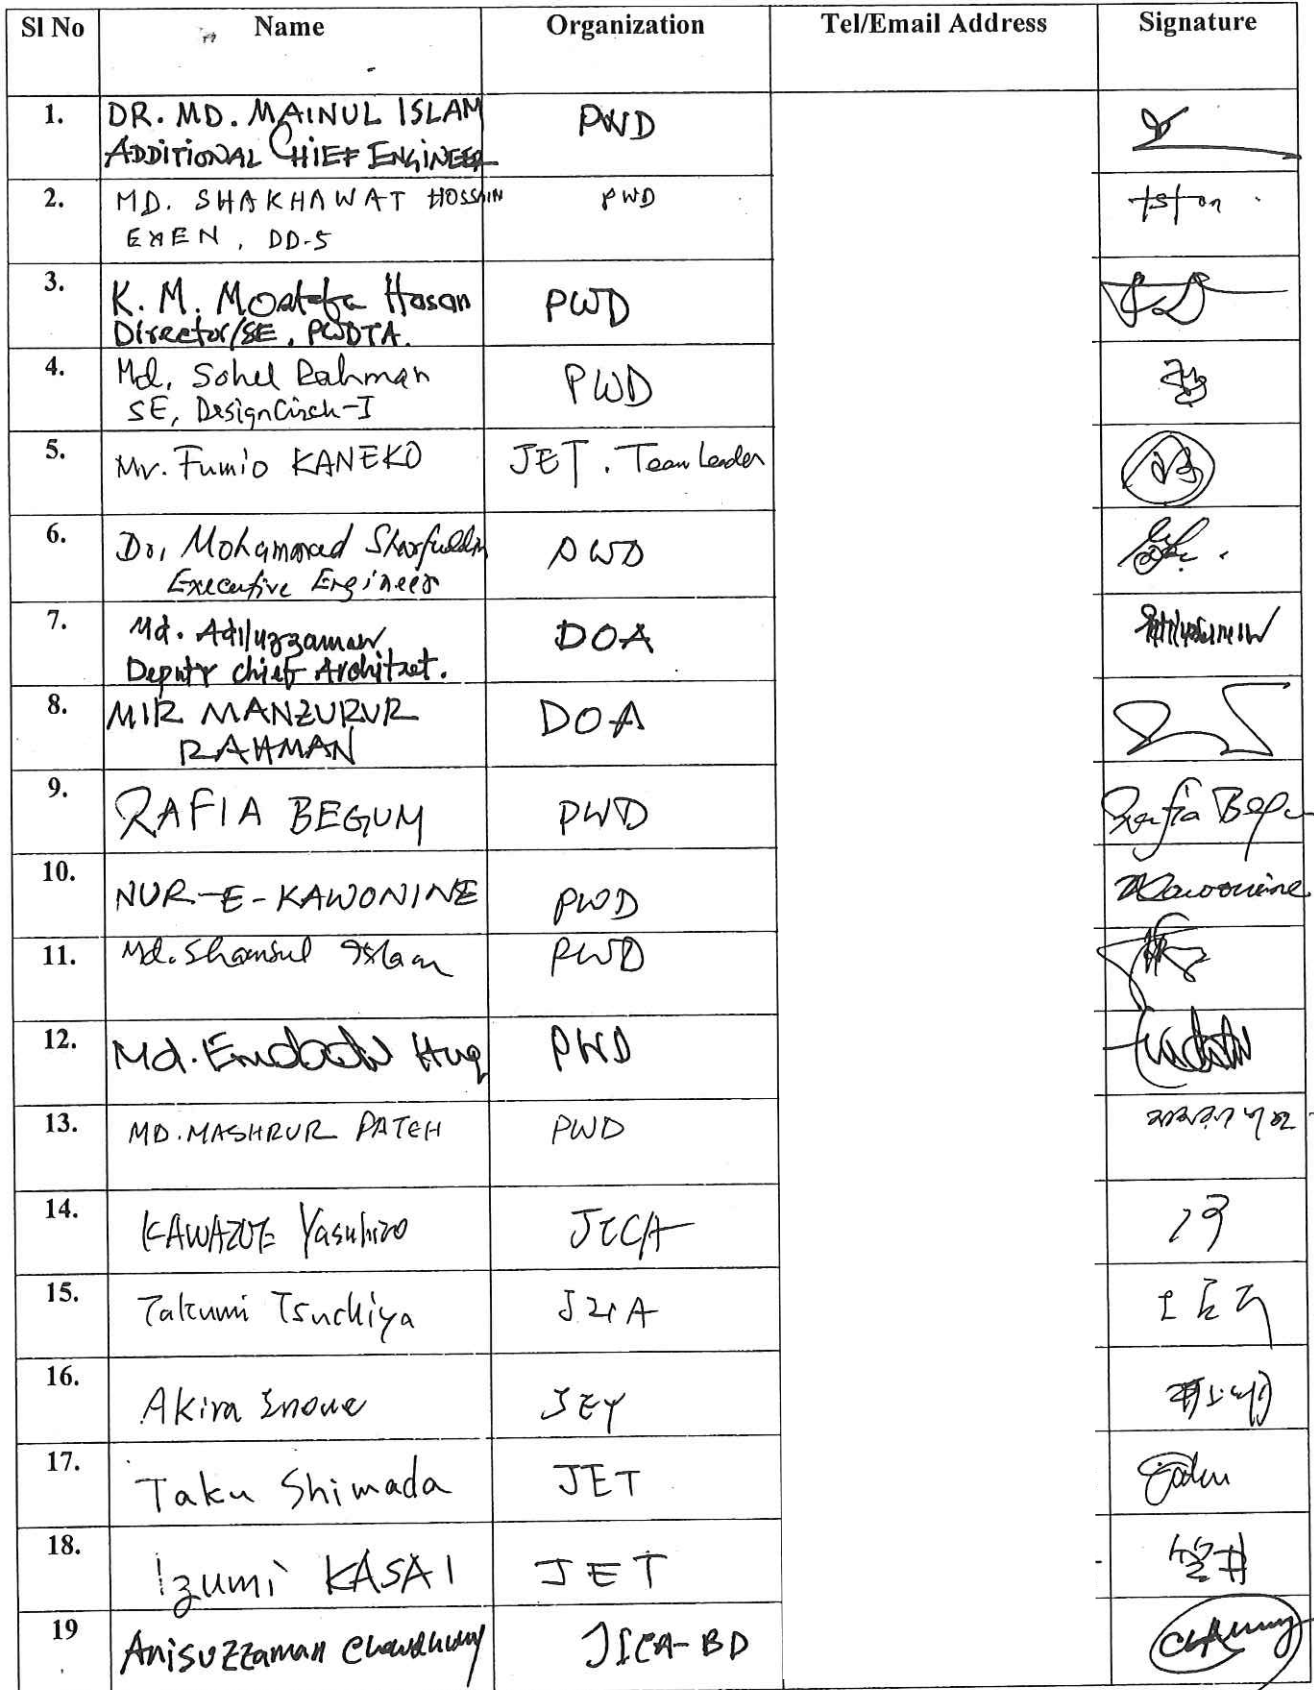 Sl No Name Organization Tel/Email Address Signature
1. DR. MD. MAINUL ISLAM PWD
ADDITIONAL CHIEF ENGINEER
2. MD. SHAKHAWAT HOSSAIN PWD
EXEN, DD-5
3. K. M. Mostafa Hasan PWD
Director/SE, PWDTA.
4. Md. Sohel Rahman PWD
SE, Design Circle-I
5. Mr. Fumio KANEKO JET. Team Leader
6. Dr. Mohammad Sharfuddin PWD
Executive Engineer
7. Md. Adiluzzaman DOA
Deputy Chief Architect.
8. MIR MANZURUR DOA
RAHMAN
9. RAFIA BEGUM PWD Rafia Begum
10. NUR-E-KAWONINE PWD Kawonine
11. Md. Shamsul Islam PWD
12. Md. Emdadul Huq PWD
13. MD. MASHRUR FATEH PWD
14. KAWAZOE Yasuhiro JICA
15. Takumi Tsuchiya JICA 土屋
16. Akira Inoue JET
17. Taku Shimada JET
18. Izumi KASAI JET 笠井
19 Anisuzzaman Chowdhury JICA-BD